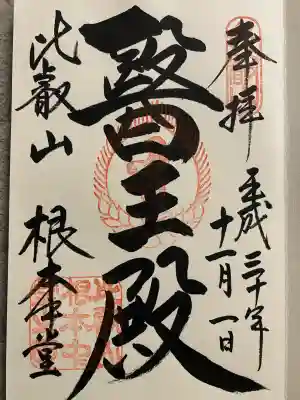 奉拝
平成三十年
十一月一日
醫王殿
比叡山 根本堂